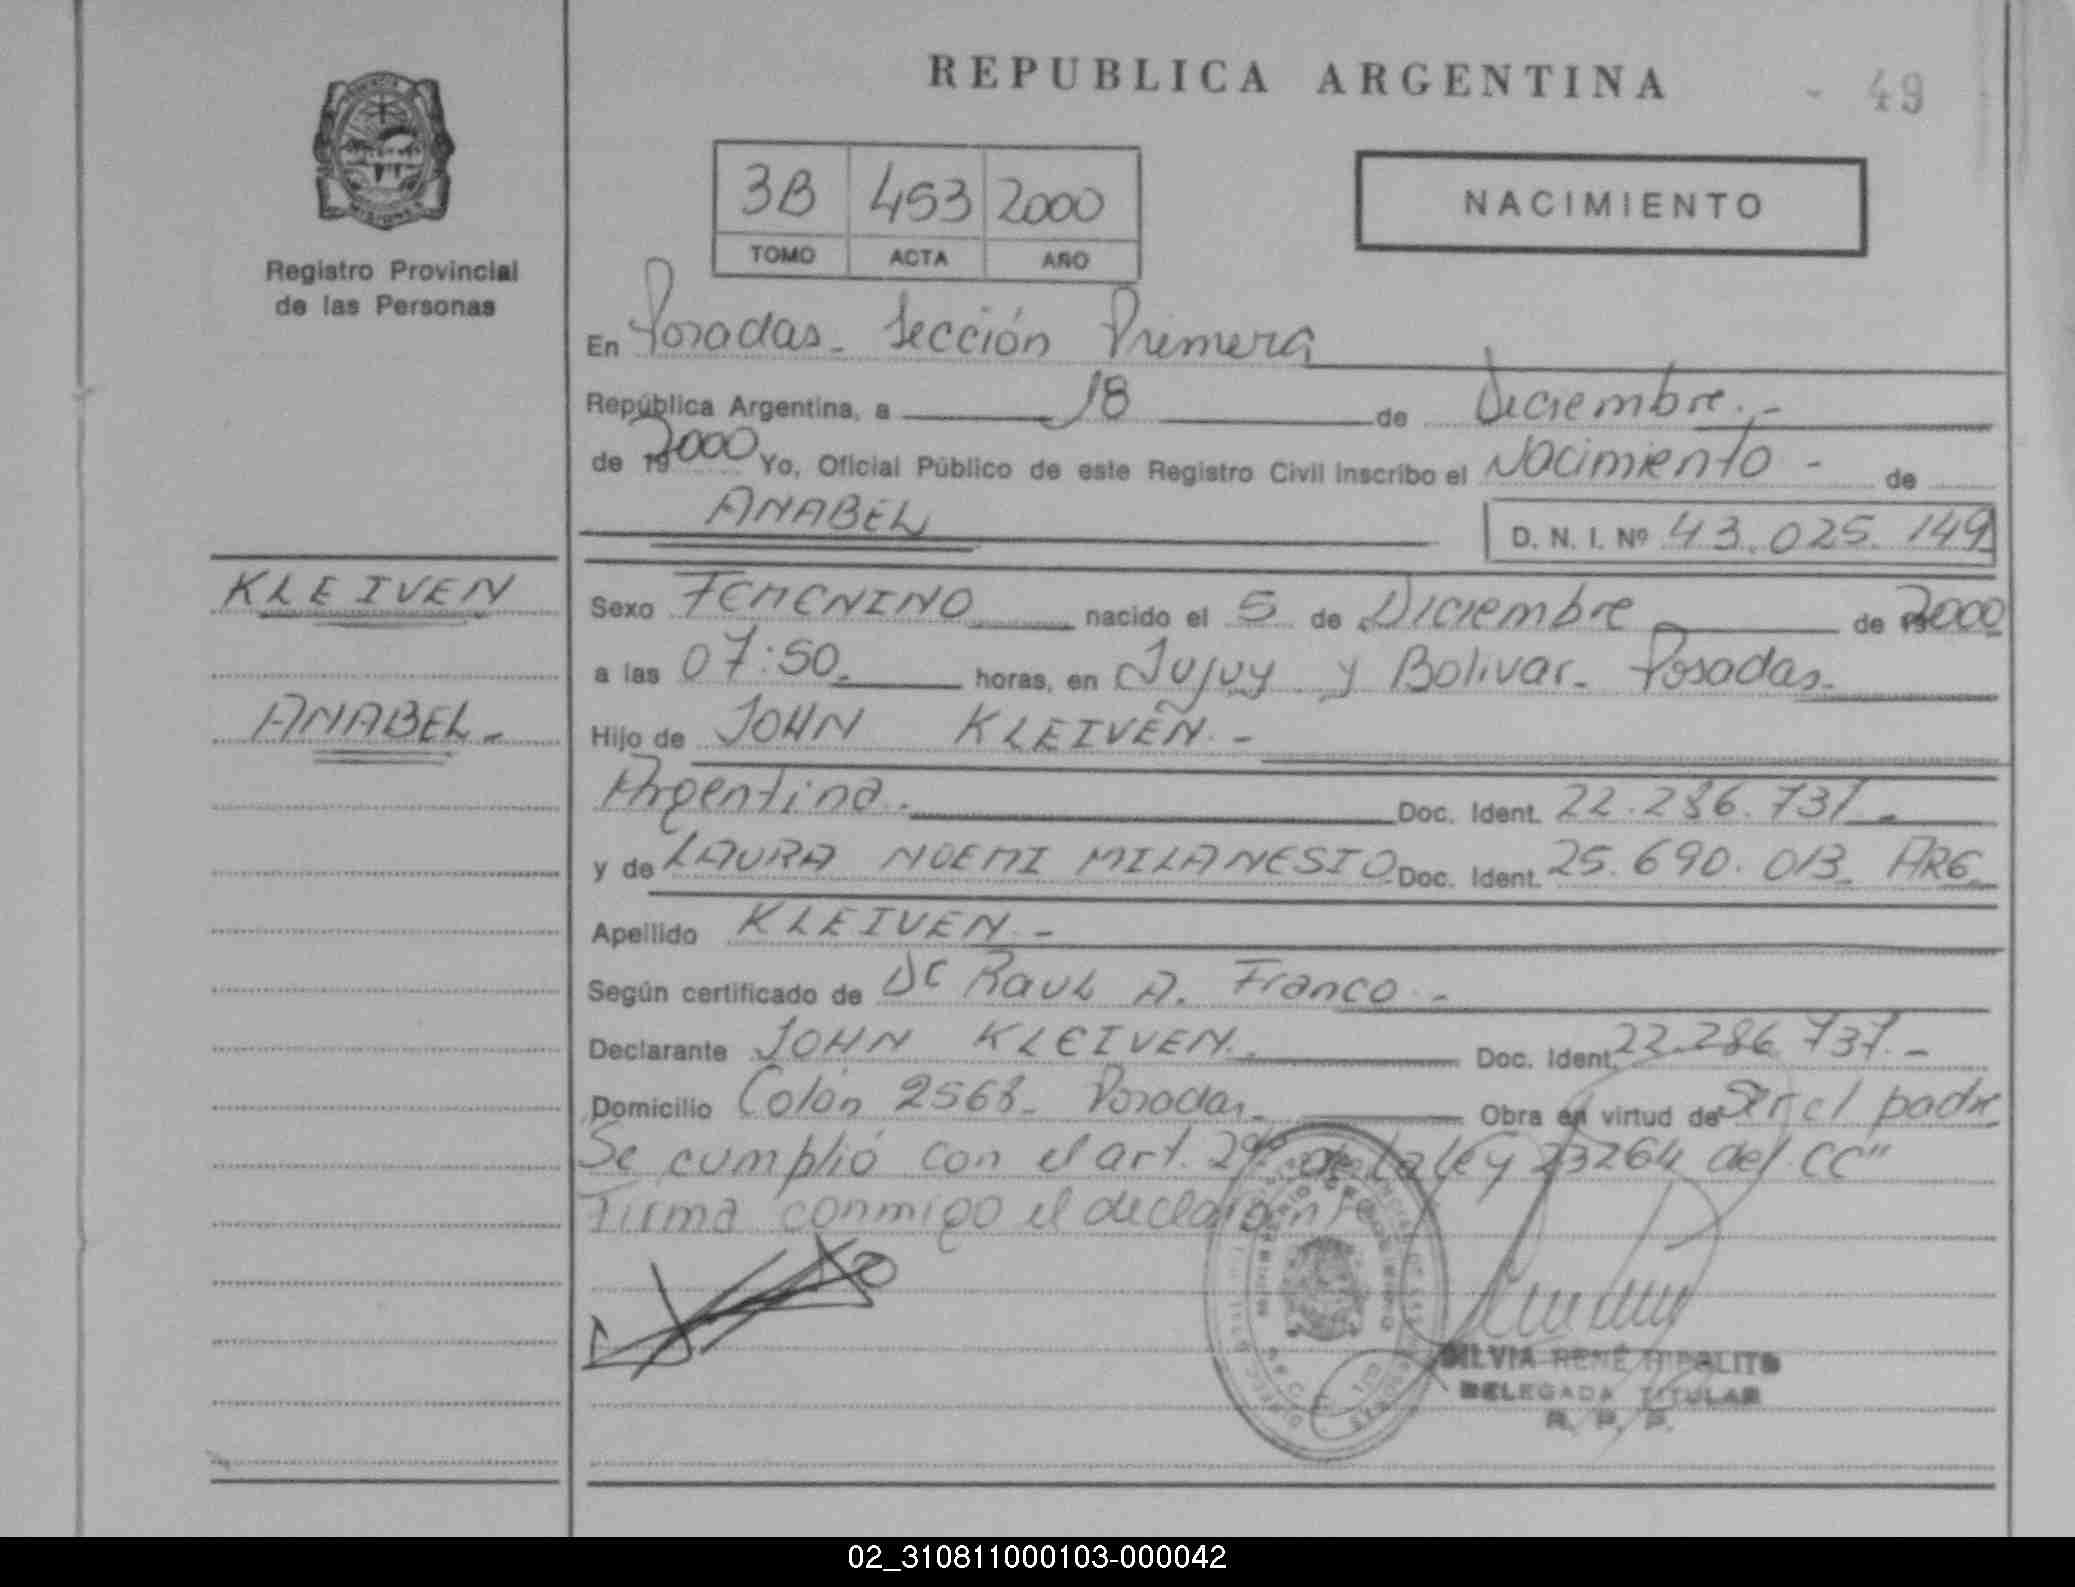 REPUBLICA ARGENTINA
49
3B 453 2000
TOMO ACTA AÑO
NACIMIENTO
MISIONES
Registro Provincial
de las Personas
En Posadas - Sección Primera
República Argentina, a 18 de Diciembre.-
de 19 2000 Yo, Oficial Público de este Registro Civil inscribo el Nacimiento - de
ANABEL
D. N. I. Nº 43.025.149
KLEIVEN
ANABEL -
Sexo FEMENINO nacido el 5 de Diciembre de 2000
a las 07:50 horas, en Jujuy y Bolivar - Posadas.
Hijo de JOHN KLEIVEN. -
Argentina. Doc. Ident. 22.286.737 -
y de LAURA NOEMI MILANESIO Doc. Ident. 25.690.013 ARG
Apellido KLEIVEN. -
Según certificado de Dr RAUL A. Franco. -
Declarante JOHN KLEIVEN. Doc. Ident. 22.286.737. -
Domicilio Colón 2568 - Posadas. Obra en virtud de Ser el padre
Se cumplió con el art. de la ley 23264 del CC"
Firma conmigo el declarante
SILVIA RENÉ HIPOLITO
DELEGADA TITULAR
R. P. P.
02_310811000103-000042